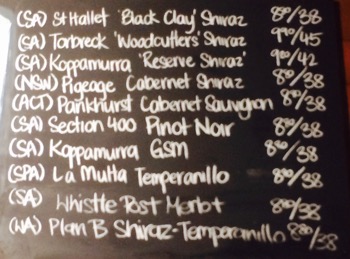 (SA) St Hallet 'Black Clay' Shiraz 8⁵⁰/38
(SA) Torbreck 'Woodcutters' Shiraz 9⁵⁰/45
(SA) Koppamurra 'Reserve Shiraz' 9⁰⁰/42
(NSW) Pigeage Cabernet Shiraz 8⁵⁰/38
(ACT) Pankhurst Cabernet Sauvignon 8⁵⁰/38
(SA) Section 400 Pinot Noir 8⁵⁰/38
(SA) Koppamurra GSM 8⁵⁰/38
(SPA) La Multa Temperanillo 8⁵⁰/38
(SA) Whistle Post Merlot 8⁵⁰/38
(WA) Plan B Shiraz-Temperanillo 8⁵⁰/38